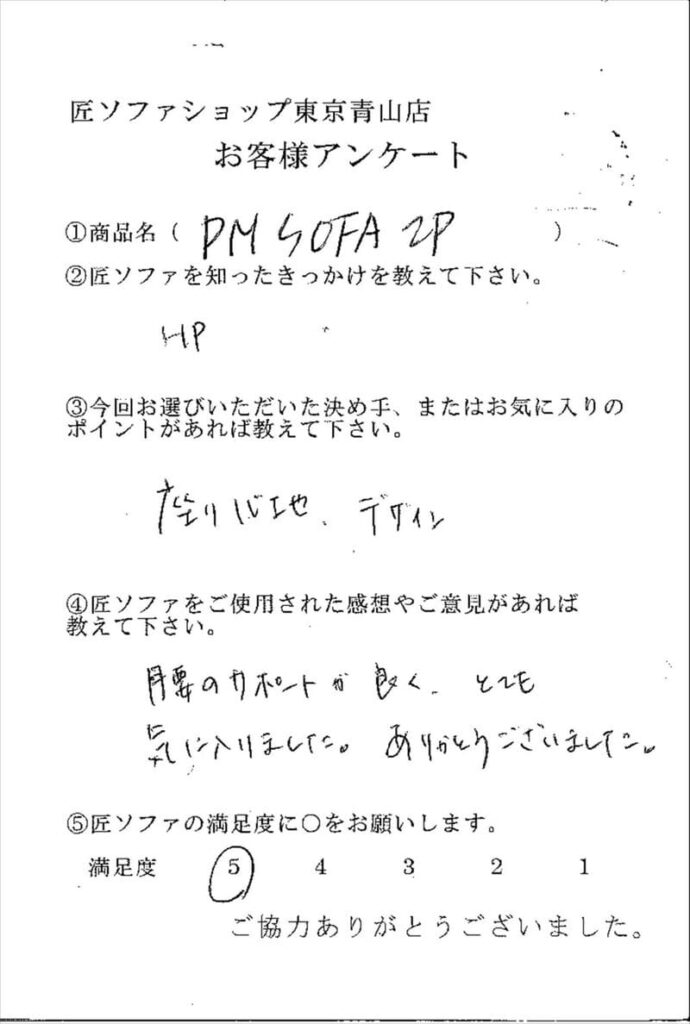 匠ソファショップ東京青山店
お客様アンケート
①商品名（ PM SOFA 2P ）
②匠ソファを知ったきっかけを教えて下さい。
HP
③今回お選びいただいた決め手、またはお気に入りの
ポイントがあれば教えて下さい。
座り心地、デザイン
④匠ソファをご使用された感想やご意見があれば
教えて下さい。
腰のサポートが良く、とても
気に入りました。ありがとうございました。
⑤匠ソファの満足度に〇をお願いします。
満足度 5 4 3 2 1
ご協力ありがとうございました。